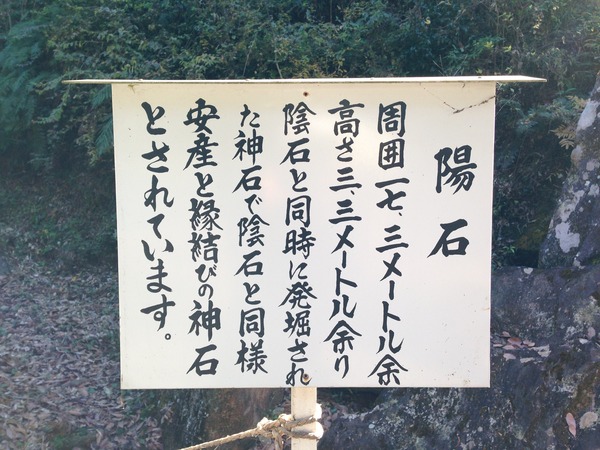 陽石
周囲一七、三メートル余
高さ三、三メートル余り
陰石と同時に発堀され
た神石で陰石と同様
安産と縁結びの神石
とされています。